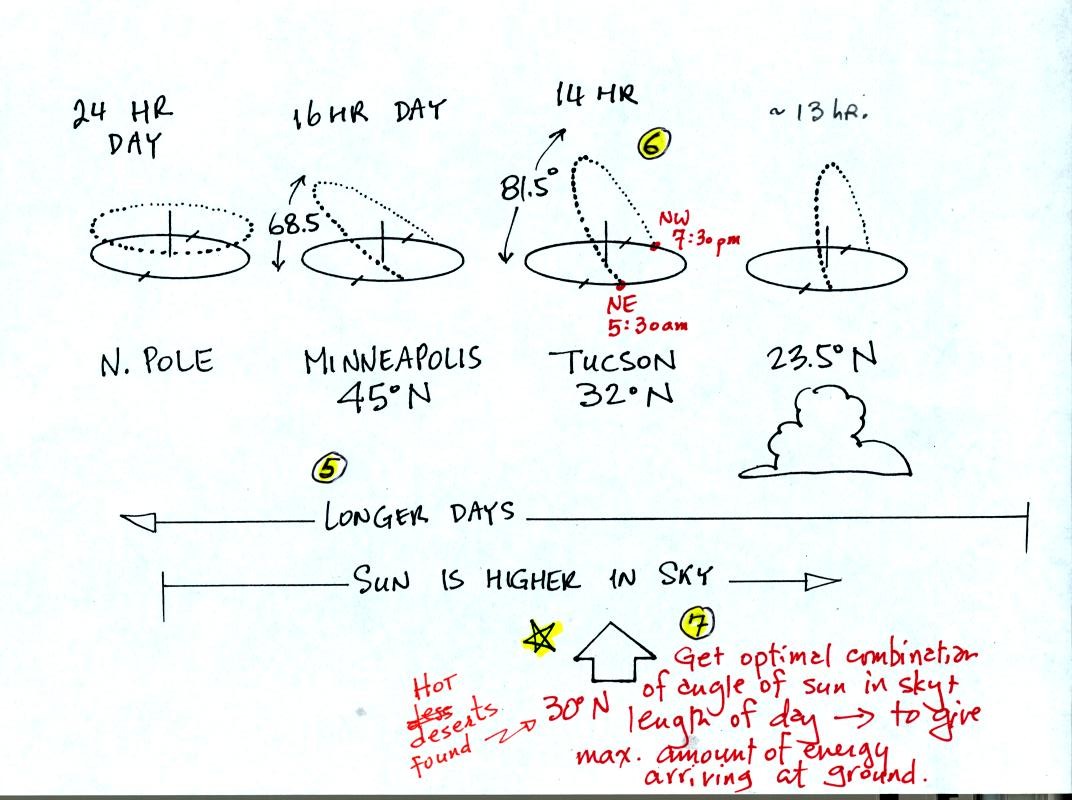 24 HR
DAY
16 HR DAY
14 HR
~ 13 hR.
6
68.5
81.5°
NW
7:30pm
NE
5:30am
N. POLE
MINNEAPOLIS
45°N
TUCSON
32°N
23.5°N
5
LONGER DAYS
SUN IS HIGHER IN SKY
7
Get optimal combination
of angle of sun in sky +
length of day → to give
max. amount of energy
arriving at ground.
30°N
HOT
less
deserts
found